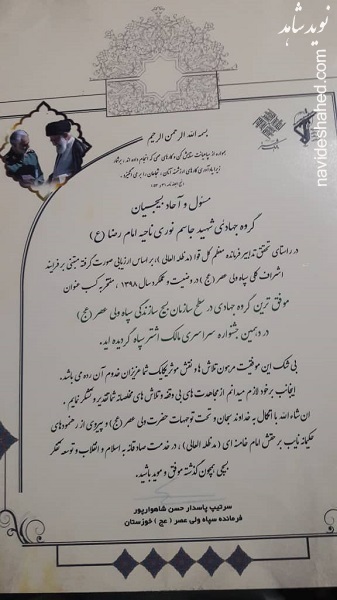 نوید شاهد
navideshahed.com
بسمه الله الرحمن الرحیم
همواره از سپاهیانت ستایش کن و کارهای مهمی که انجام داده اند، برشمار
زیرا یادآوری کارهای ارزشمند آنان، شجاعان را برمی انگیزد.
مسئول و آحاد بسیجیان
گروه جهادی شهید جاسم نوری ناحیه امام رضا (ع)
در راستای تحقق تدابیر فرمانده معظم کل قوا (مدظله العالی)، بر اساس ارزیابی صورت گرفته مبتنی بر فرایند
اشراف کلی سپاه ولی عصر (عج) در وضعیت و عملکرد سال ۱۳۹۸، مفتخر به کسب عنوان
موفق ترین گروه جهادی در سطح سازمان بسیج سازندگی سپاه ولی عصر (عج)
در دهمین جشنواره سراسری مالک اشتر سپاه گردیده اید.
بی شک این موفقیت مرهون تلاش ها و نقش موثر یکایک شما عزیزان خدوم آن رده می باشد.
اینجانب بر خود لازم میدانم از مجاهدت های بی وقفه و تلاش های مخلصانه شما تقدیر و تشکر نمایم.
ان شاء الله با اتکال به خداوند سبحان و تحت توجهات حضرت ولی عصر (عج) و پیروی از رهنمودهای
حکیمانه نایب بر حقش امام خامنه ای (مدظله العالی)، در خدمت صادقانه به اسلام و انقلاب و توسعه تفکر
بسیجی همچون گذشته موفق و موید باشید.
سرتیپ پاسدار حسن شاهوارپور
فرمانده سپاه ولی عصر (عج) خوزستان